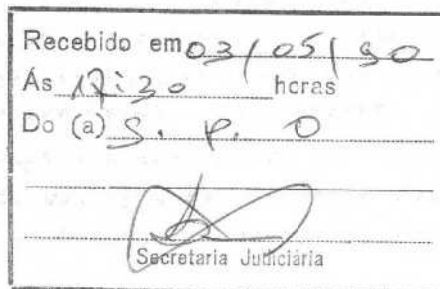 Recebido em 03/05/90
Ás 17:30 horas
Do (a) S. P. O
Secretaria Judiciária